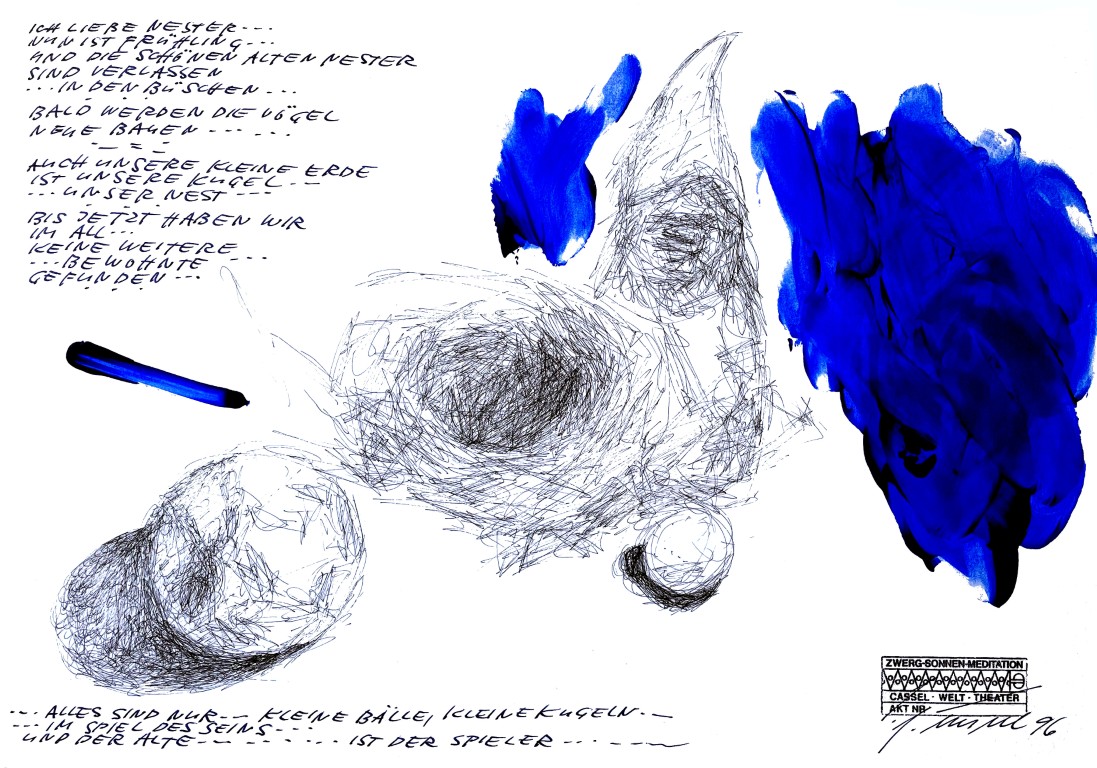 ICH LIEBE NESTER---
NUN IST FRÜHLING---
UND DIE SCHÖNEN ALTEN NESTER
SIND VERLASSEN
---IN DEN BÜSCHEN---
BALD WERDEN DIE VÖGEL
NEUE BAUEN --- ---
AUCH UNSERE KLEINE ERDE
IST UNSERE KUGEL.--
---UNSER NEST---
BIS JETZT HABEN WIR
IM ALL---
KEINE WEITERE
---BEWOHNTE ---
GEFUNDEN---
ZWERG-SONNEN-MEDITATION
CASSEL · WELT · THEATER
AKT NR
96
--- ALLES SIND NUR-- KLEINE BÄLLE, KLEINE KUGELN.--
---IM SPIEL DES SEINS---
UND DER ALTE--- --- --- IST DER SPIELER --- ---